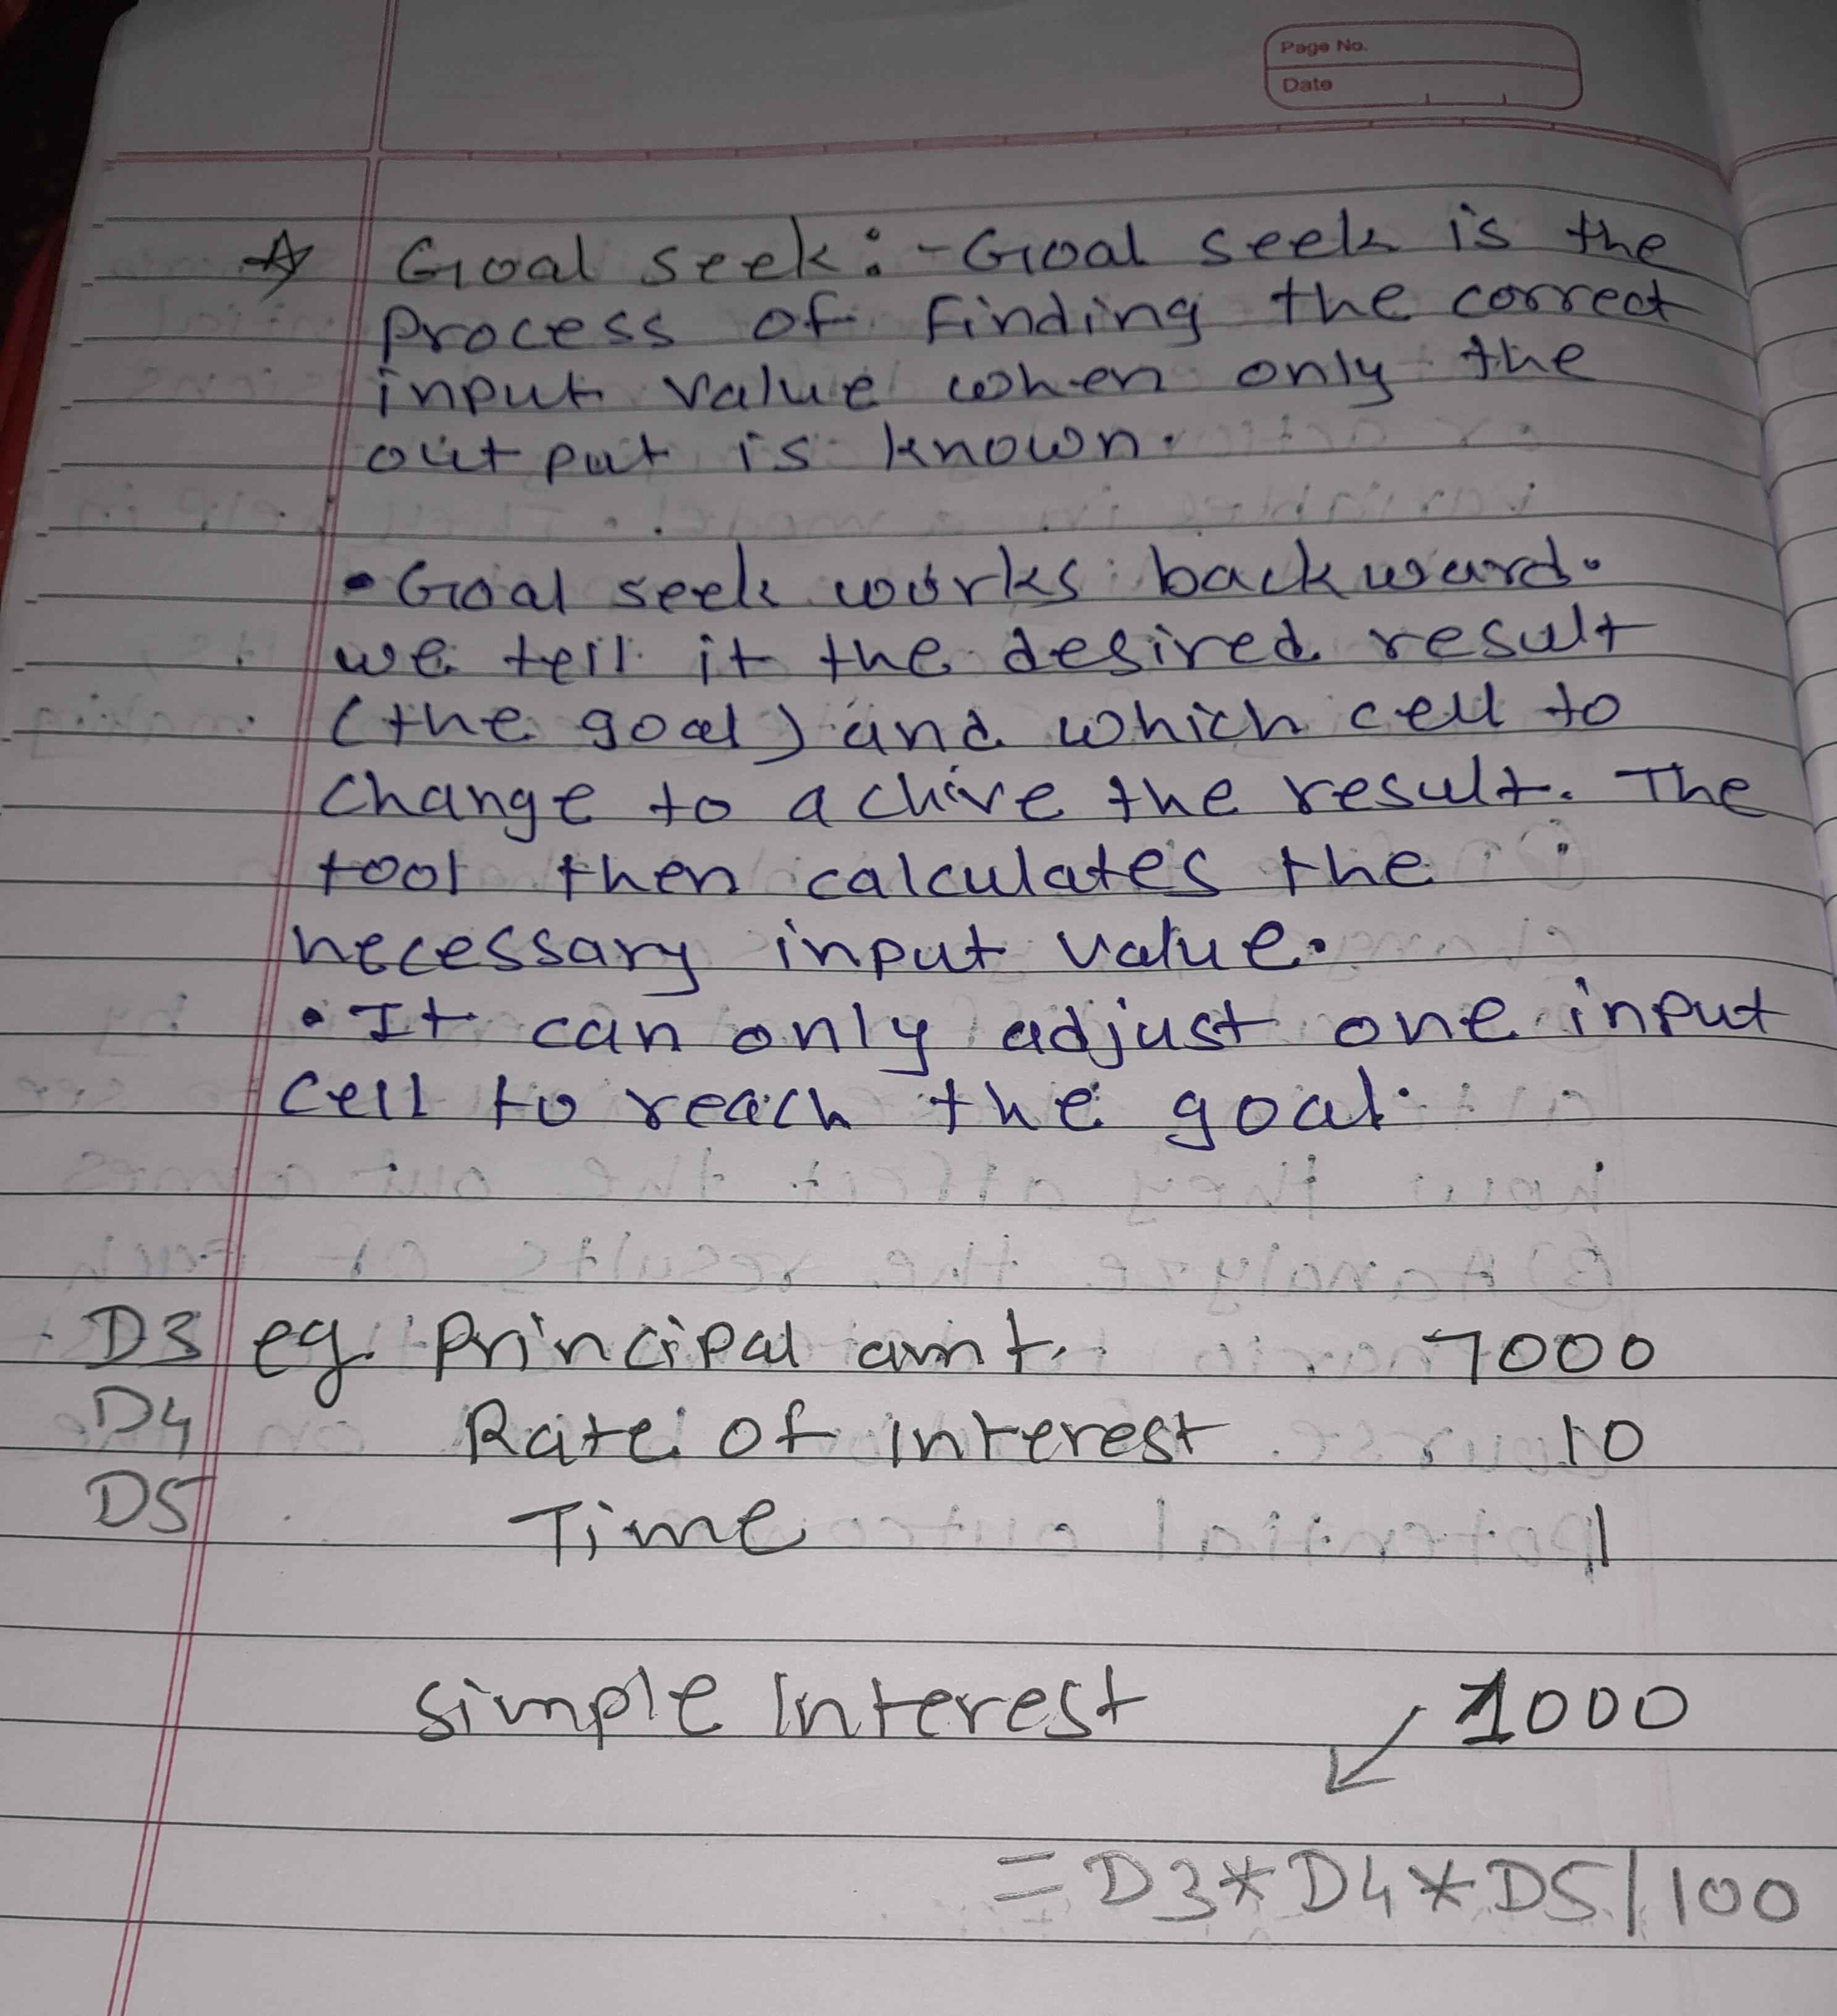 Page No.
Date
☆ Goal seek :- Goal seek is the
process of finding the correct
input value when only the
output is known.
• Goal seek works backward.
we tell it the desired result
(the goal) and which cell to
change to achive the result. The
tool then calculates the
necessary input value.
• It can only adjust one input
cell to reach the goal.
D3 eg. Principal amt. 7000
D4 Rate of interest 10
D5 Time 1
simple Interest 1000
=D3*D4*D5/100